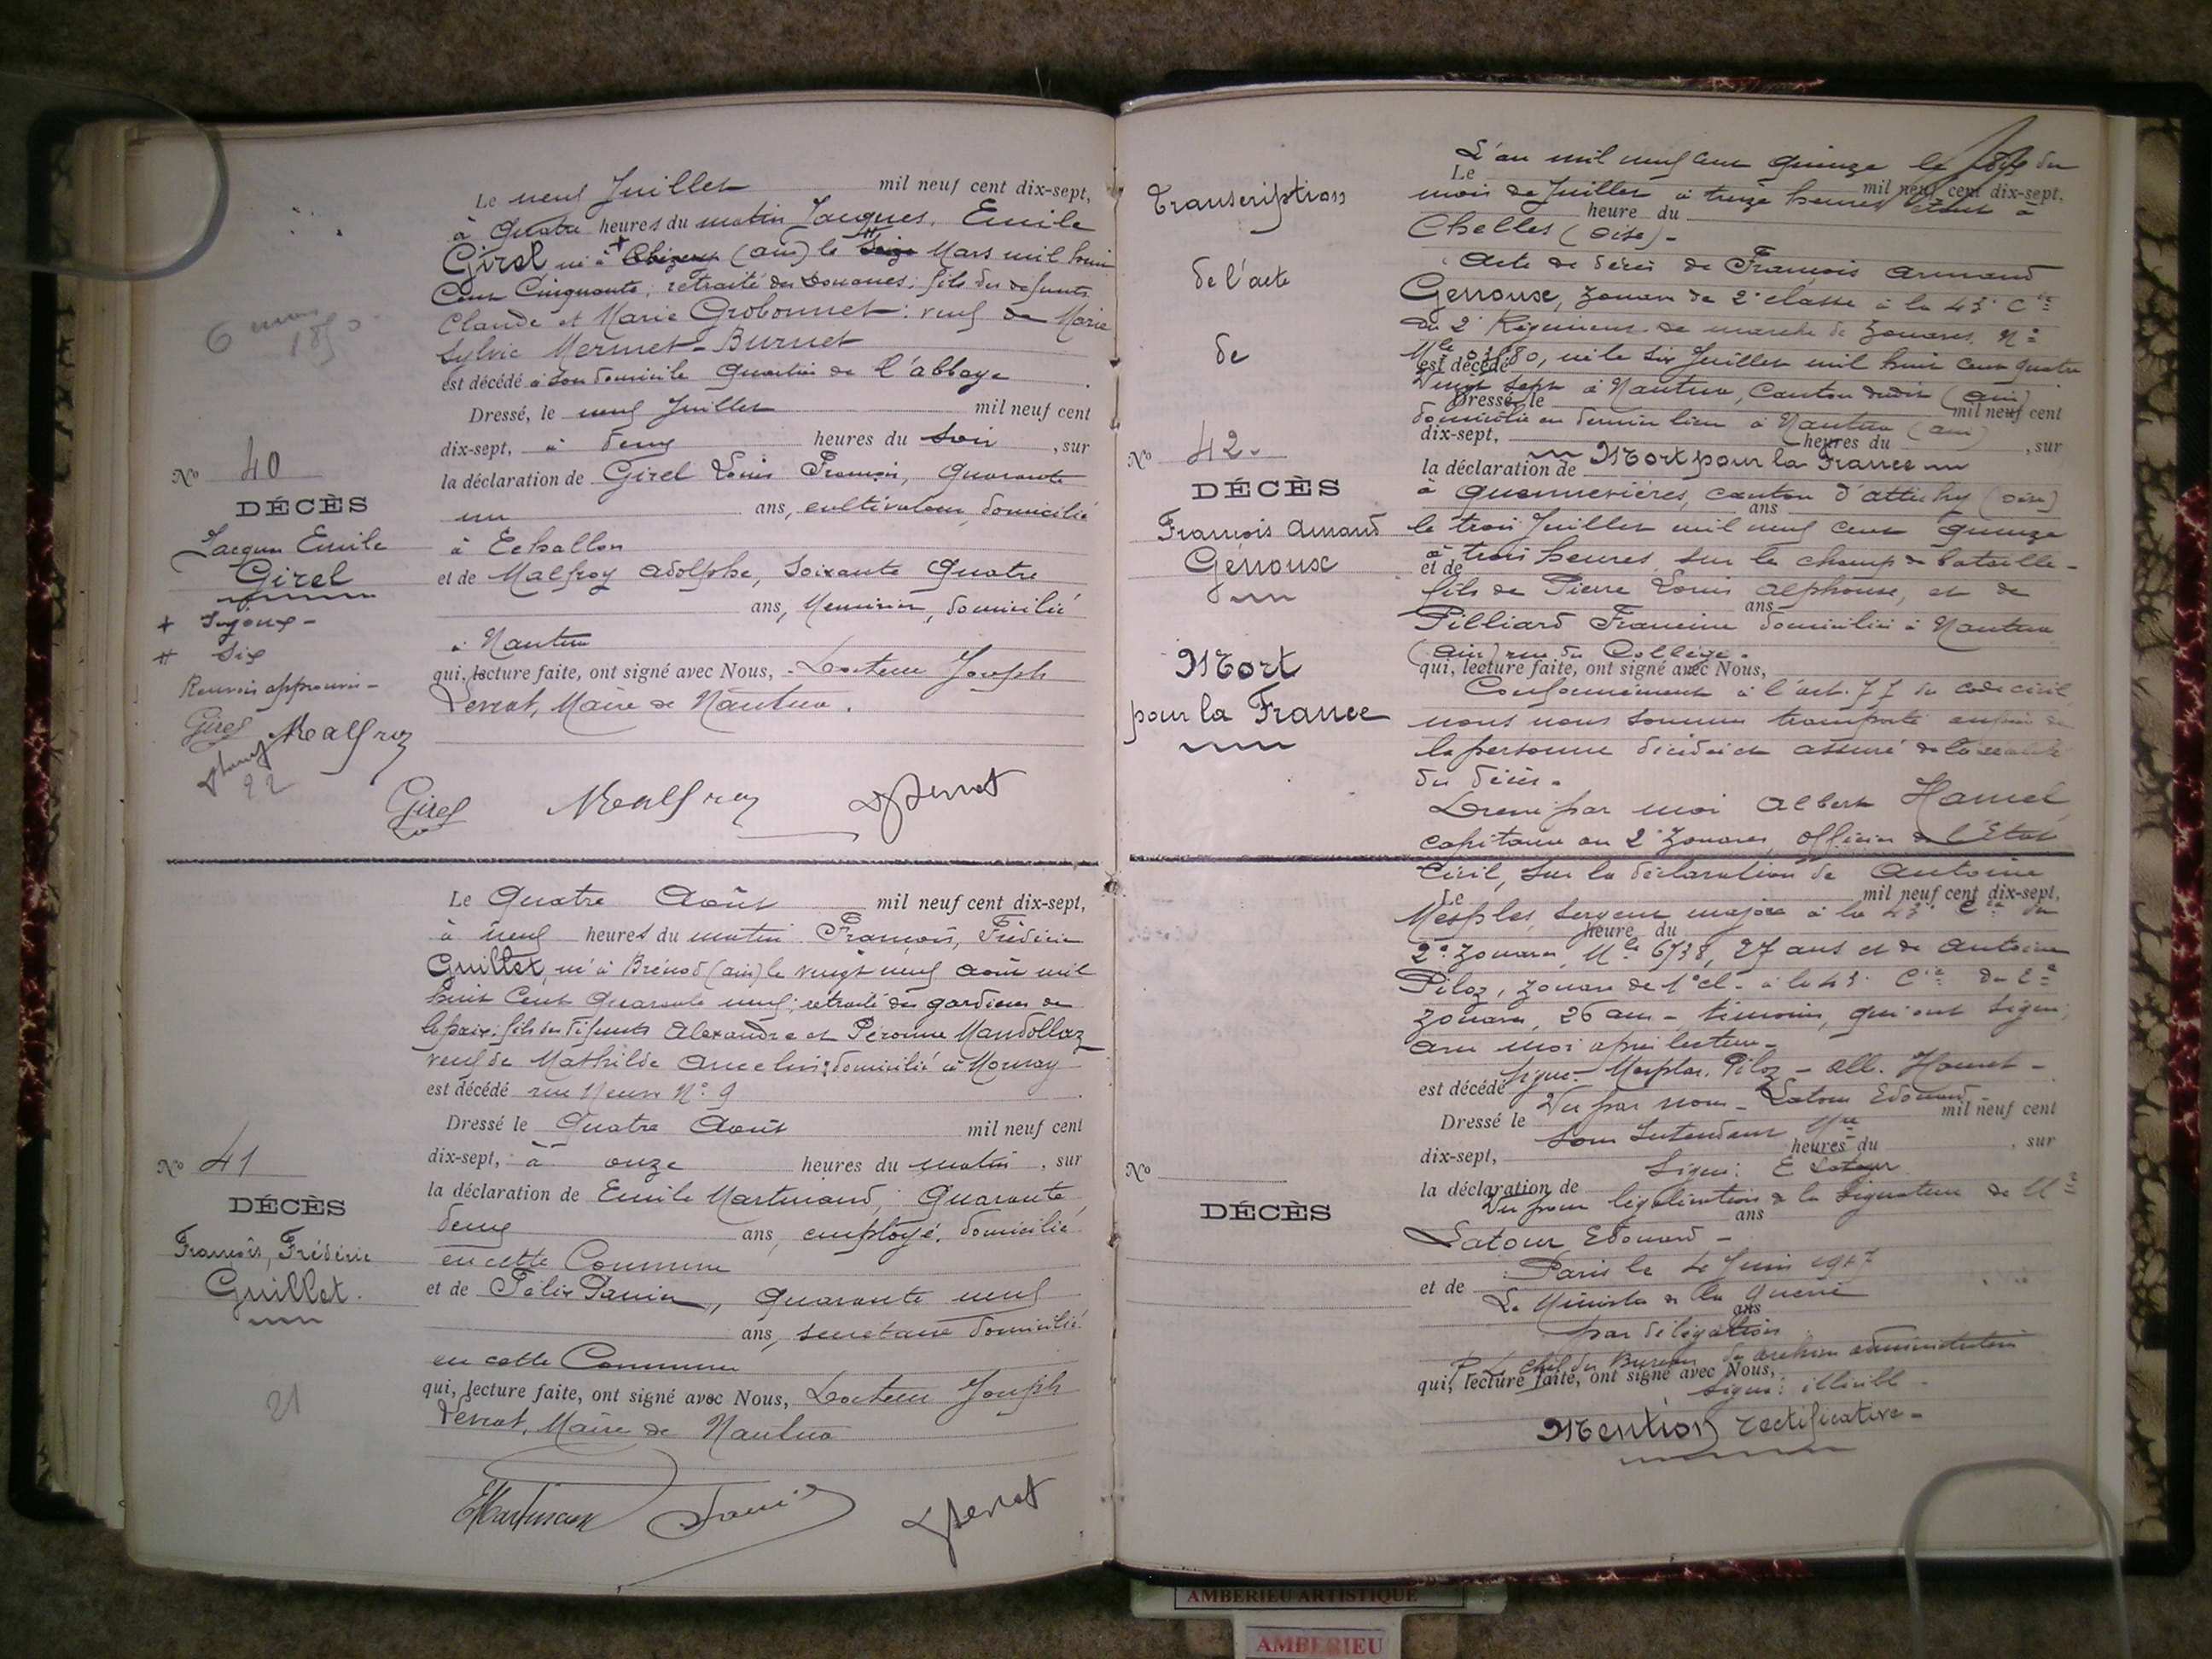 Le neuf Juillet mil neuf cent dix-sept,
à quatre heures du matin Jacques, Emile
Girel né à + Chizeux (ain) le # Seize Mars mil huit
Cent Cinquante; retraité des Douanes; fils des defunts
Claude et Marie Grobonnet: veuf de Marie
Sylvie Mermet-Burnet
est décédé à son domicile quartier de l'abbaye
Dressé, le neuf Juillet mil neuf cent
dix-sept, à deux heures du soir, sur
la déclaration de Girel Louis François, quarante
un ans, cultivateur, domicilié
à Echallon
et de Malfroy adolphe, soixante quatre
ans, Menuisier, domicilié
à Nantua
qui, lecture faite, ont signé avec Nous, Docteur Joseph
Levrat, Maire de Nantua.
Girel Malfroy
6 mars
1850
No 40
DÉCÈS
Jacques Emile
Girel
+ Sujoux-
# Six
Renvois approuvés-
Girel Malfroy
22
Le quatre Août mil neuf cent dix-sept,
à neuf heures du matin François, Frédéric
Guillet, né à Brénod (ain) le vingt neuf août mil
huit cent quarante neuf; retraité des gardiens de
la paix; fils des défunts Alexandre et Péronne Mandollaz
veuf de Mathilde Ancelin; domicilié à Mornay
est décédé rue Neuve No 9
Dressé le quatre Août mil neuf cent
dix-sept, à onze heures du matin, sur
la déclaration de Emile Martinand, quarante
deux ans, employé, domicilié
en cette Commune
et de Félix Panier, quarante neuf
ans, secrétaire domicilié
en cette Commune
qui, lecture faite, ont signé avec Nous, Docteur Joseph
Levrat, Maire de Nantua
No 41
DÉCÈS
François, Frédéric
Guillet.
21
Transcription
de l'acte
de
No 42.
DÉCÈS
François Armand
Genoux
Mort
pour la France
L'an mil neuf cent quinze le du
Le mil neuf cent dix-sept,
mois de Juillet à treize heures étant à
heure du
Chelles (Oise)-
Acte de décès de François armand
Genoux, zouave de 2e classe à la 43e Cie
du 2e Régiment de marche de zouaves, No
Mle 80, né le six Juillet mil huit cent quatre
est décédé
vingt sept à Nantua, Canton dudit (ain)
Dressé, le mil neuf cent
domicilié en dernier lieu à Nantua (ain)
dix-sept, heures du , sur
Mort pour la France
la déclaration de
à Quennevières, canton d'attichy (oise)
ans
le trois Juillet mil neuf cent quinze
à trois heures, sur le champ de bataille-
et de
fils de Pierre Louis alphonse, et de
ans
Pilliard Francine domiciliés à Nantua
(ain) rue du Collège.
qui, lecture faite, ont signé avec Nous,
Conformément à l'art. 77 du code civil
nous nous sommes transporté auprès de
la personne décédée et assuré de la réalité
du décès.
Dressé par moi Albert Hamel
capitaine au 2e Zouaves, officier de l'Etat
Civil, sur la déclaration de Antoine
Le mil neuf cent dix-sept,
Mesples, sergent major à la 43e Cie du
heure du
2e zouaves, Mle 6738, 27 ans et de Antoine
Piloz, zouave de 1e cl. à la 43e Cie du 2e
zouaves, 26 ans - témoins, qui ont signé
avec moi après lecture-
Signé: Mesples, Piloz - Alb. Hamel -
est décédé
Vu par nous - Latour Edouard
Dressé le mil neuf cent
Sous Intendant Mre
dix-sept, heures du , sur
Signé: E Latour
la déclaration de
Vu pour légalisation de la signature de M
ans
Latour Edouard -
Paris le 4 Juin 1917
et de
Le Ministre de la Guerre
ans
par délégation
P. Le chef du Bureau des archives administratives
qui, lecture faite, ont signé avec Nous,
Signé: illisible -
Mention rectificative-
No
DÉCÈS
AMBERIEU ARTISTIQUE
AMBERIEU